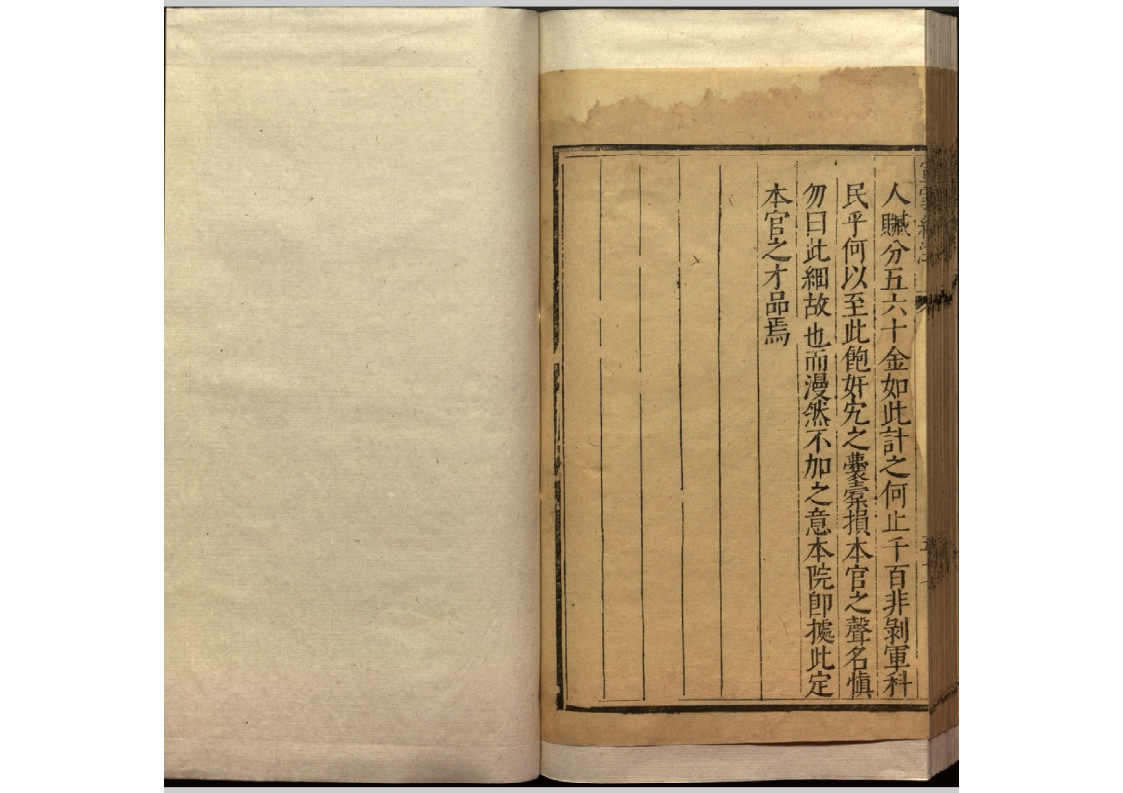 人贓分五六十金如此計之何止千百非剝軍科
民乎何以至此飽奸宄之囊槖損本官之聲名慎
勿曰此細故也而漫然不加之意本院卽據此定
本官之才品焉